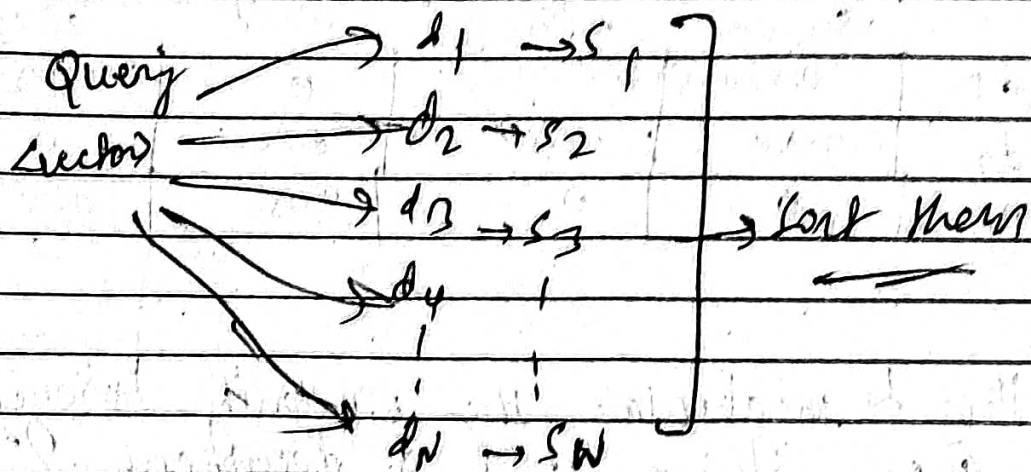 Query
<vector>
d1 → s1
d2 → s2
d3 → s3
d4
dN → sN
→ Sort them